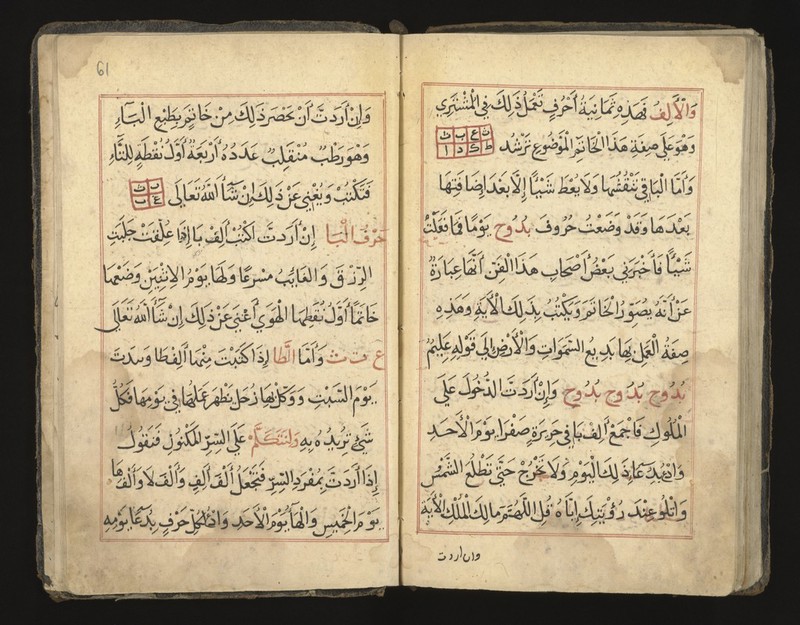 وَالْأَلِفُ فَهَذِهِ ثَمَانِيَةُ أَحْرُفٍ تَعْمَلُ ذَلِكَ فِي الْمُشْتَرِي
وَهُوَ عَلَى صِفَةِ هَذَا الْخَاتَمِ الْمَوْضُوعِ تَرْشُد
ط ك د ا
وَأَمَّا الْبَاقِي تَنْقُشُهَا وَلَا يُعْطِ شَيْئًا إِلَّا بَعْدَ إِضَافَتِهَا
بَعْدَهَا وَقَدْ وَضَعْتُ حُرُوفَ بُدُوحٍ يَوْمًا فَمَا فَعَلَتْ
شَيْئًا فَأَخْبَرَنِي بَعْضُ أَصْحَابِ هَذَا الْفَنِّ أَنَّهَا عِبَارَةٌ
عَنْ أَنَّهُ يُصَوِّرُ الْخَاتَمَ وَيَكْتُبُ بِذَلِكَ الْأَيَةِ وَهَذِهِ
صِفَةُ الْعَمَلِ بِهَا بَدِيعُ السَّمَوَاتِ وَالْأَرْضِ إِلَى قَوْلِهِ عَلِيمٌ
بُدُوحٍ بُدُوحٍ بُدُوحٍ وَإِنْ أَرَدْتَ الدُّخُولَ عَلَى
الْمُلُوكِ فَاجْمَعْ أَلِف بَا فِي حَرِيرَةٍ صَفْرَا يَوْمَ الْأَحَدِ
وَادْعُ بِدُعَا ذَلِكَ الْيَوْمِ وَلَا تَخْرُجْ حَتَّى تَطْلُعَ الشَّمْسُ
وَاتْلُو عِنْدَ رُؤْيَتِكَ إِيَّاهُ قُلِ اللَّهُمَّ مَالِكَ الْمُلْكِ الْأَيَةَ
وان اردت
61
وَإِنْ أَرَدْتَ أَنْ تَحْصَرَ ذَلِكَ مِنْ خَاتَمٍ بِطَبْعِ الْبَاءِ
وَهُوَ رَطْبٌ مُنْقَلِبٌ عَدَدُهُ أَرْبَعَةٌ أَوَّلُ نُقْطَةٍ لِلتَّاءِ
فَتَكْتُبُ وَيُغْنِي عَنْ ذَلِكَ إِنْ شَاءَ اللَّهُ تَعَالَى
حَرْفُ الْبَا إِنْ أَرَدْتَ اكْتُبْ أَلِف بَا إِذَا عُلِّقَتْ جَلَبَتِ
الرِّزْقَ وَالْغَايِبَ مُسْرِعًا وَلَهَا يَوْمُ الِاثْنَيْنِ وَضَعْهُمَا
خَاتَمًا أَوَّلُ نُقَطِهِمَا الْهَوَى أَغْنَى عَنْ ذَلِكَ إِنْ شَاءَ اللَّهُ تَعَالَى
ع ت ث وَأَمَّا الطَّا إِذَا كَتَبْتَ مِنْهُمَا أَلِف طَا
يَوْمَ السَّبْتِ وَوَكِّلْ بِهَا زُحَلَ تَظْهَرْ عَمَلُهَا فِي يَوْمِهَا فَكُلُّ
شَيْءٍ تُرِيدُهُ بِهِ وَلْنَتَكَلَّمْ عَلَى السِّرِّ الْمَكْنُونِ فَنَقُولُ
إِذَا أَرَدْتَ بِمُفْرَدِ السِّرِّ فَتَجْعَلُ أَلْفَ أَلِفٍ وَأَلْفَ لَا وَأَلْفَ هَا
يَوْمَ الْخَمِيسِ وَالْهَا يَوْمَ الْأَحَدِ وَادْعُ لِكُلِّ حَرْفٍ بِدُعَا يَوْمِهِ